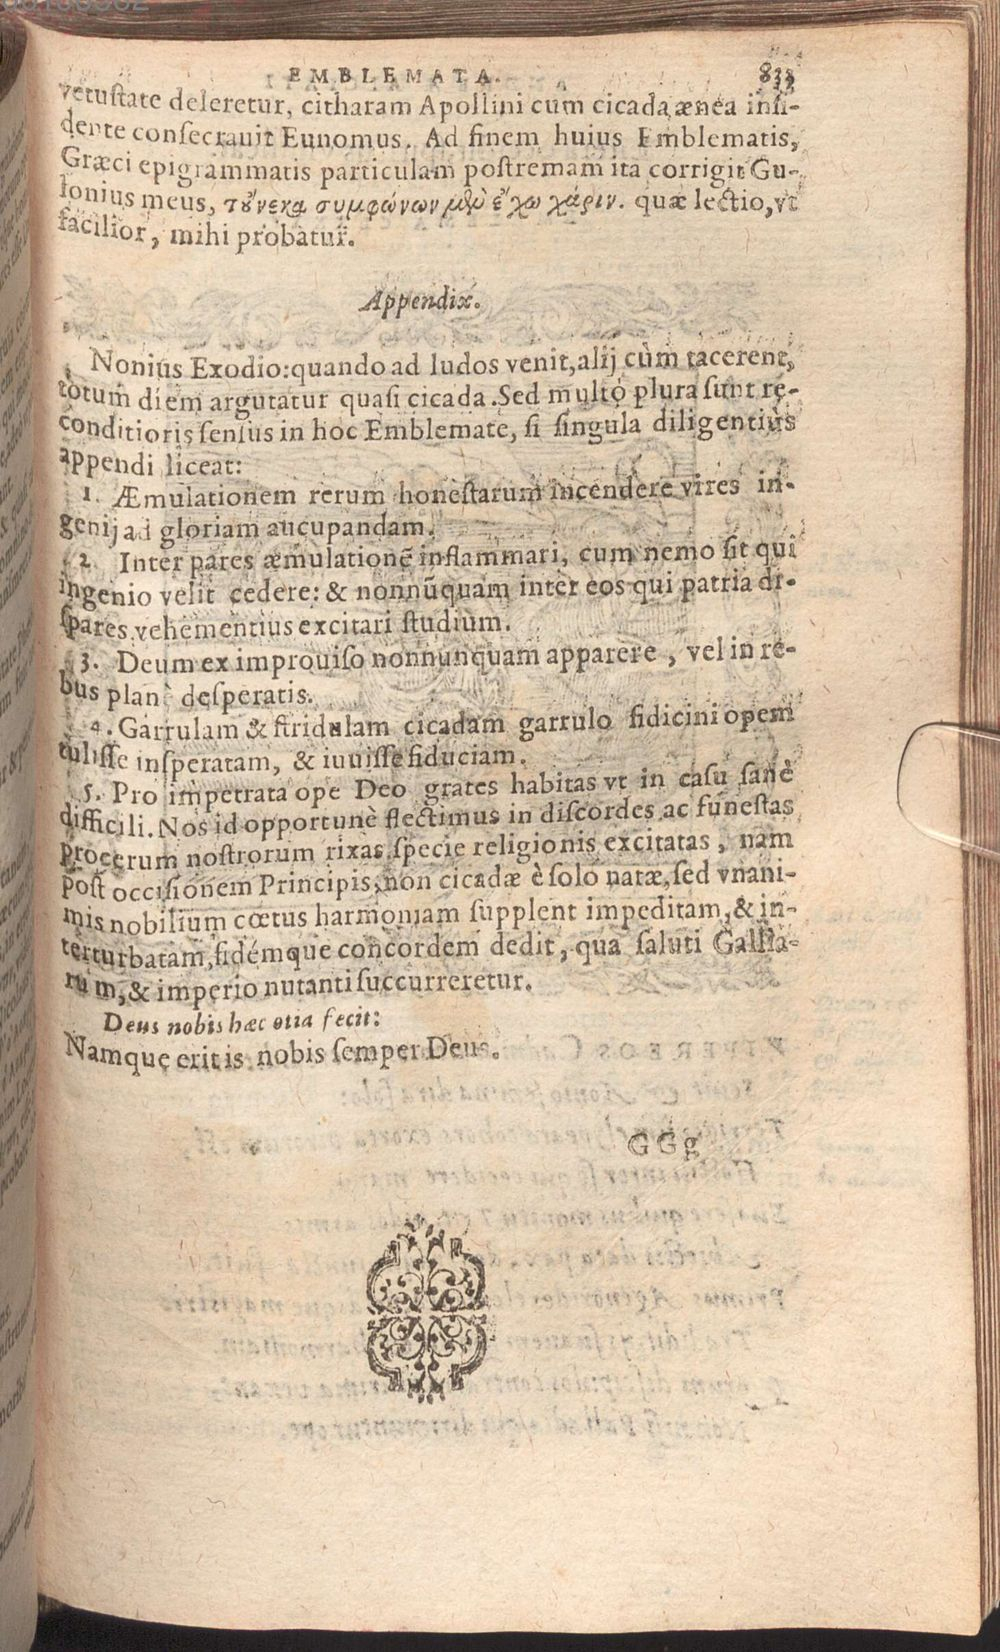 EMBLEMATA. 833
vetustate deleretur, citharam Apollini cum cicada ænea insi-
dente consecrauit Eunomus. Ad finem huius Emblematis,
Græci epigrammatis particulam postremam ita corrigit Gu-
lonius meus, τοὔνεκα συμφώνων μὲν ἔχω χάριν. quæ lectio, vt
facilior, mihi probatur.
Appendix.
Nonius Exodio: quando ad ludos venit, alij cùm tacerent,
totum diem argutatur quasi cicada. Sed multò plura sunt re-
conditioris sensus in hoc Emblemate, si singula diligentiùs
appendi liceat:
1. Æmulationem rerum honestarum incendere vires in-
genij ad gloriam aucupandam.
2. Inter pares æmulationẽ inflammari, cum nemo sit qui
ingenio velit cedere: & nonnũquam inter eos qui patria di-
spares vehementius excitari studium.
3. Deum ex improuiso nonnunquam apparere, vel in re-
bus planè desperatis.
4. Garrulam & stridulam cicadam garrulo fidicini opem
tulisse insperatam, & iuuisse fiduciam.
5. Pro impetrata ope Deo grates habitas vt in casu sanè
difficili. Nos id opportunè flectimus in discordes ac funestas
procerum nostrorum rixas specie religionis excitatas, nam
post occisionem Principis, non cicadæ è solo natæ, sed vnani-
mis nobilium cœtus harmoniam supplent impeditam, & in-
terturbatam, fidémque concordem dedit, qua saluti Gallia-
rum, & imperio nutanti succurreretur.
Deus nobis hæc otia fecit:
Namque erit is nobis semper Deus.
GGg